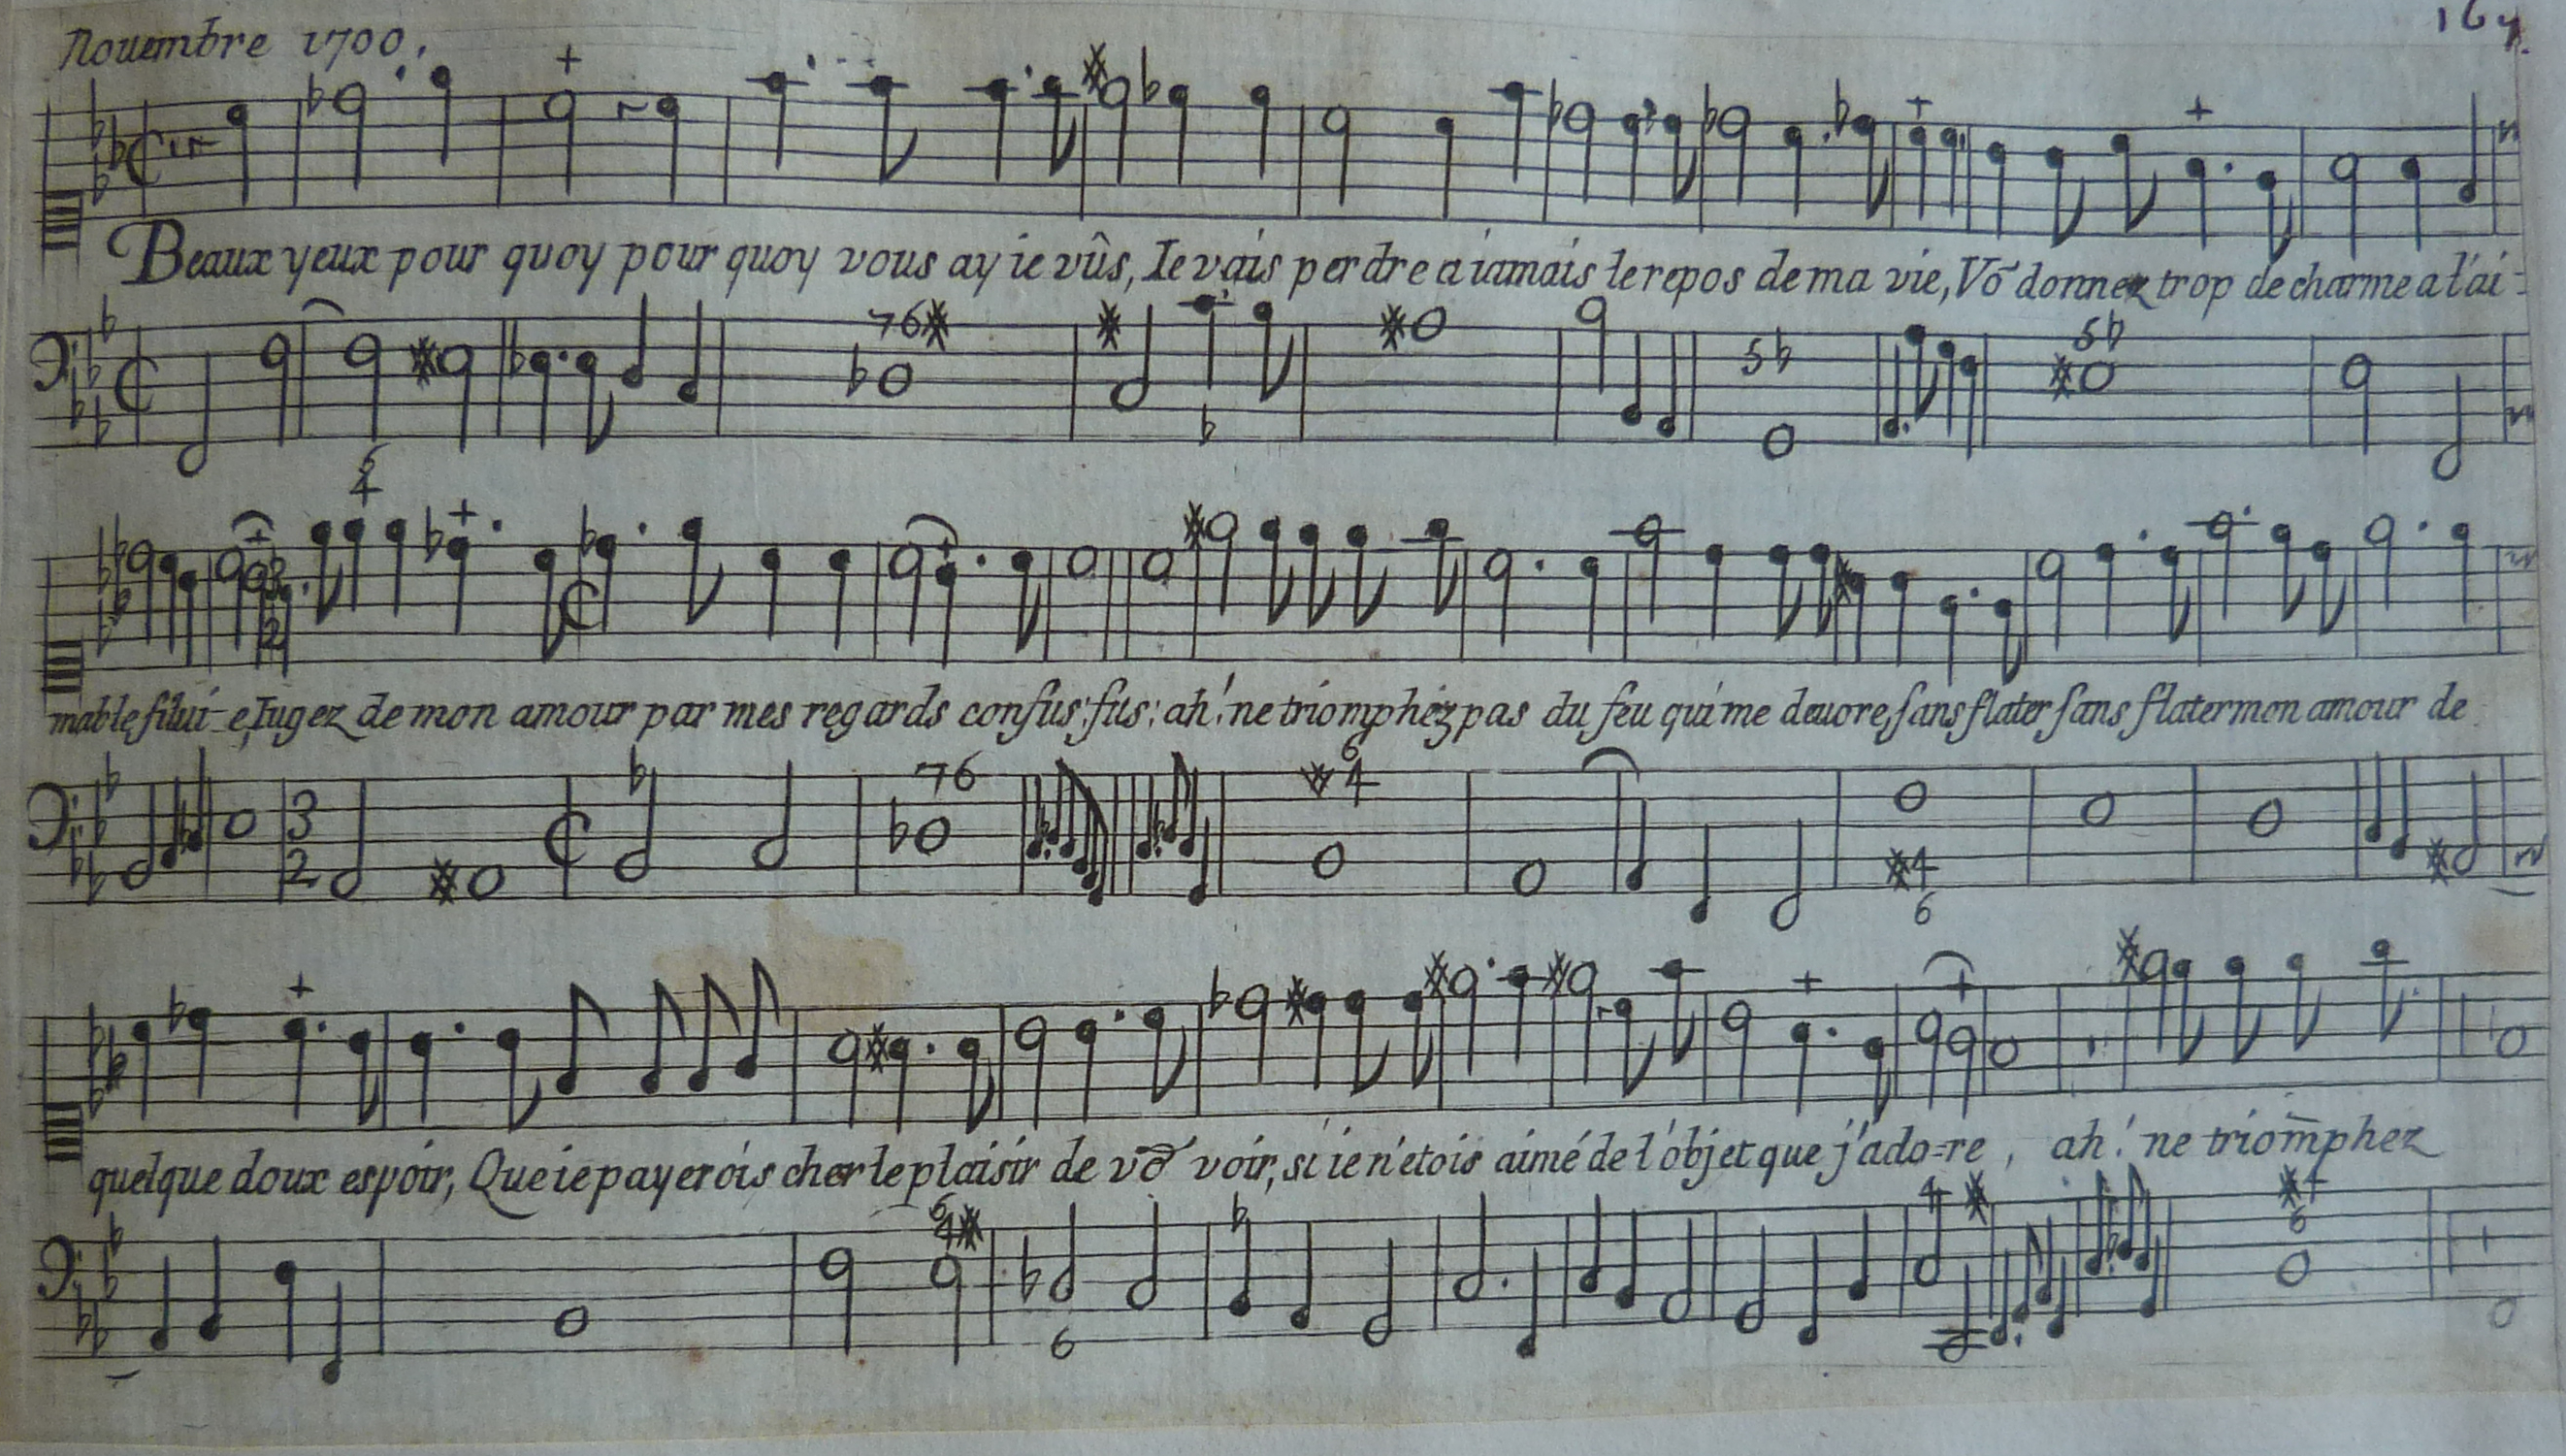 Nouembre 1700.
Beaux yeux pour quoy pour quoy vous ay ie vûs, Ie vais perdre a iamais le repos de ma vie, Võ donnez trop de charme a l'ai-
76
5b 5b
6
4
mable silui-e, Iugez de mon amour par mes regards confus: fus: ah! ne triomphez pas du feu qui me deuore, sans flater sans flater mon amour de
3
2
3
2
76
6
4
4
6
quelque doux espoir, Que ie payerois cher le plaisir de võ voir, si ie n'etois aimé de l'objet que j'ado=re, ah! ne triom̃phez
6
4
6
4
4
6